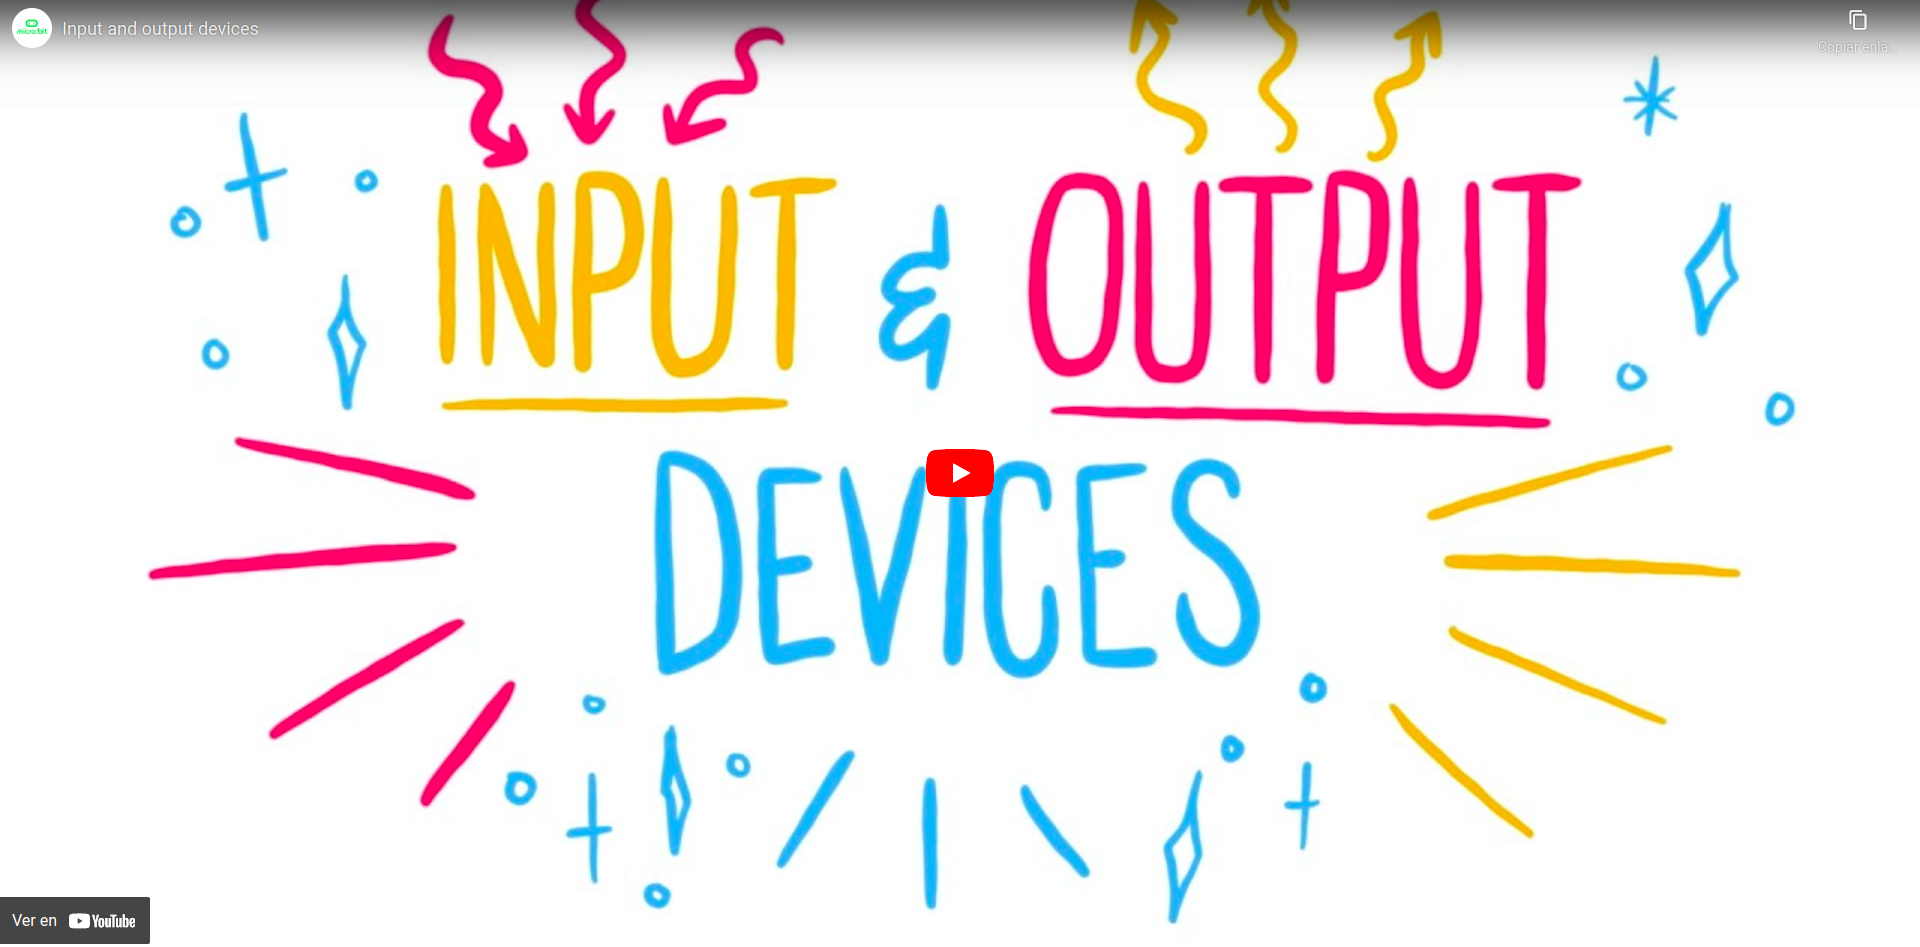 micro:bit
Input and output devices
Copiar enla...
INPUT & OUTPUT
DEVICES
Ver en YouTube